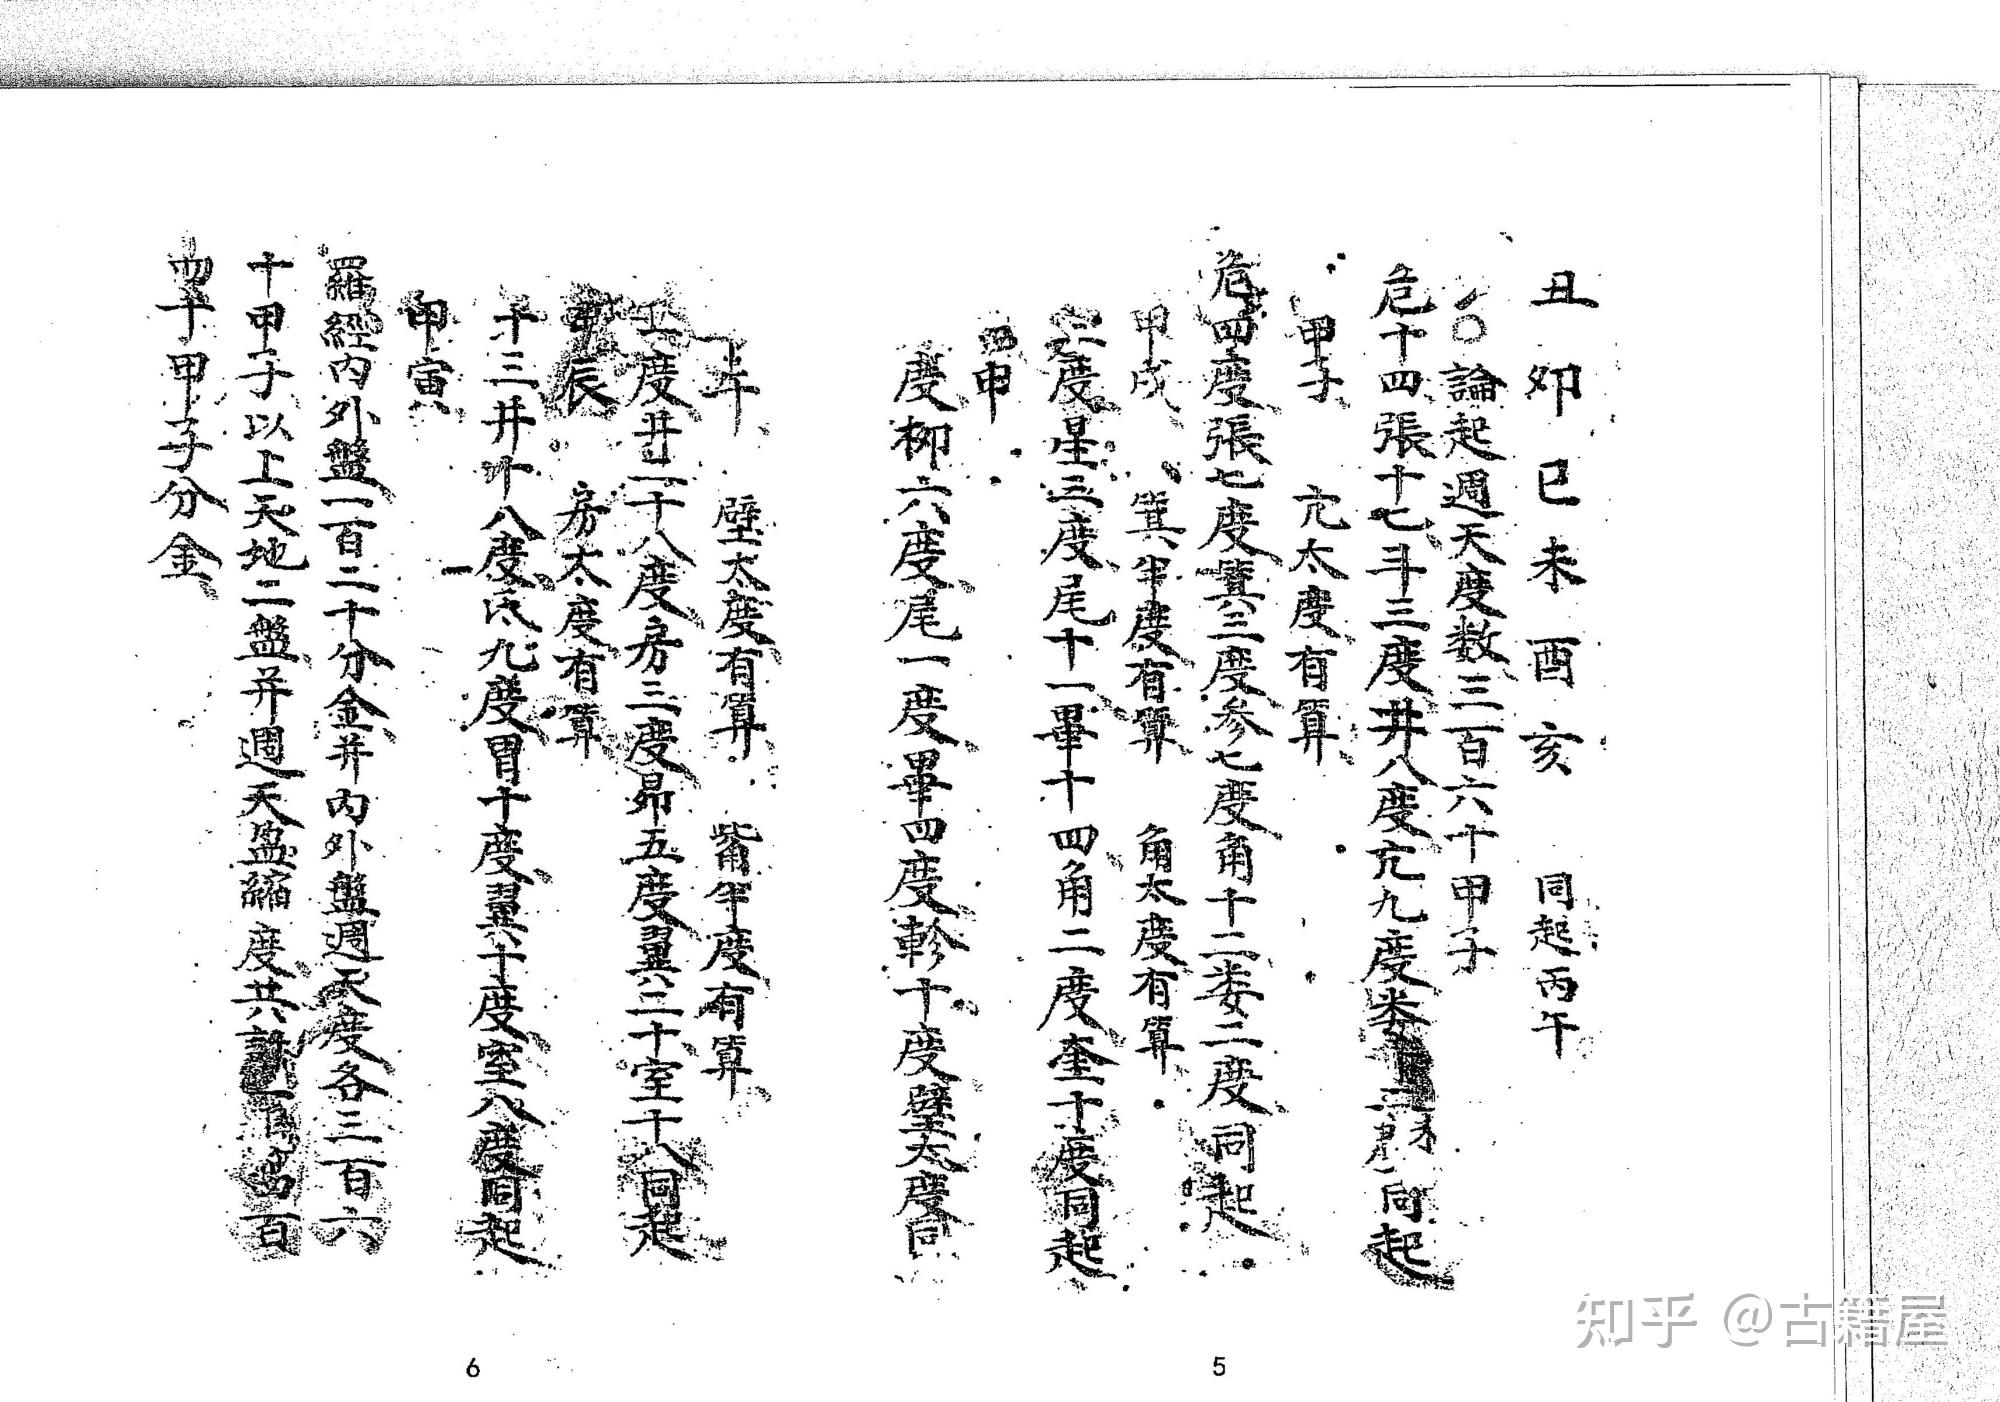 丑卯巳未酉亥 同起丙午
○論起週天度数三百六十甲子
危十四張十七斗三度井八度亢九度娄 同起
甲子 亢太度有算
危四度張七度箕三度参七度角十二娄二度同起
甲戌 箕半度有算 角太度有算
三度星三度尾十一畢十四角二度奎十度同起
申
度柳六度尾一度畢四度軫十度壁太度同
5
壁太度有算 觜半度有算
度井二十八度房三度昴五度翼二十室十八同起
辰 房太度有算
十三井十八度氐九度胃十度翼十度室八度同起
甲寅
羅經内外盤一百二十分金并内外盤週天度各三百六
十甲子以上天地二盤并週天盈縮度共 百
四十甲子分金
6
知乎 @古籍屋